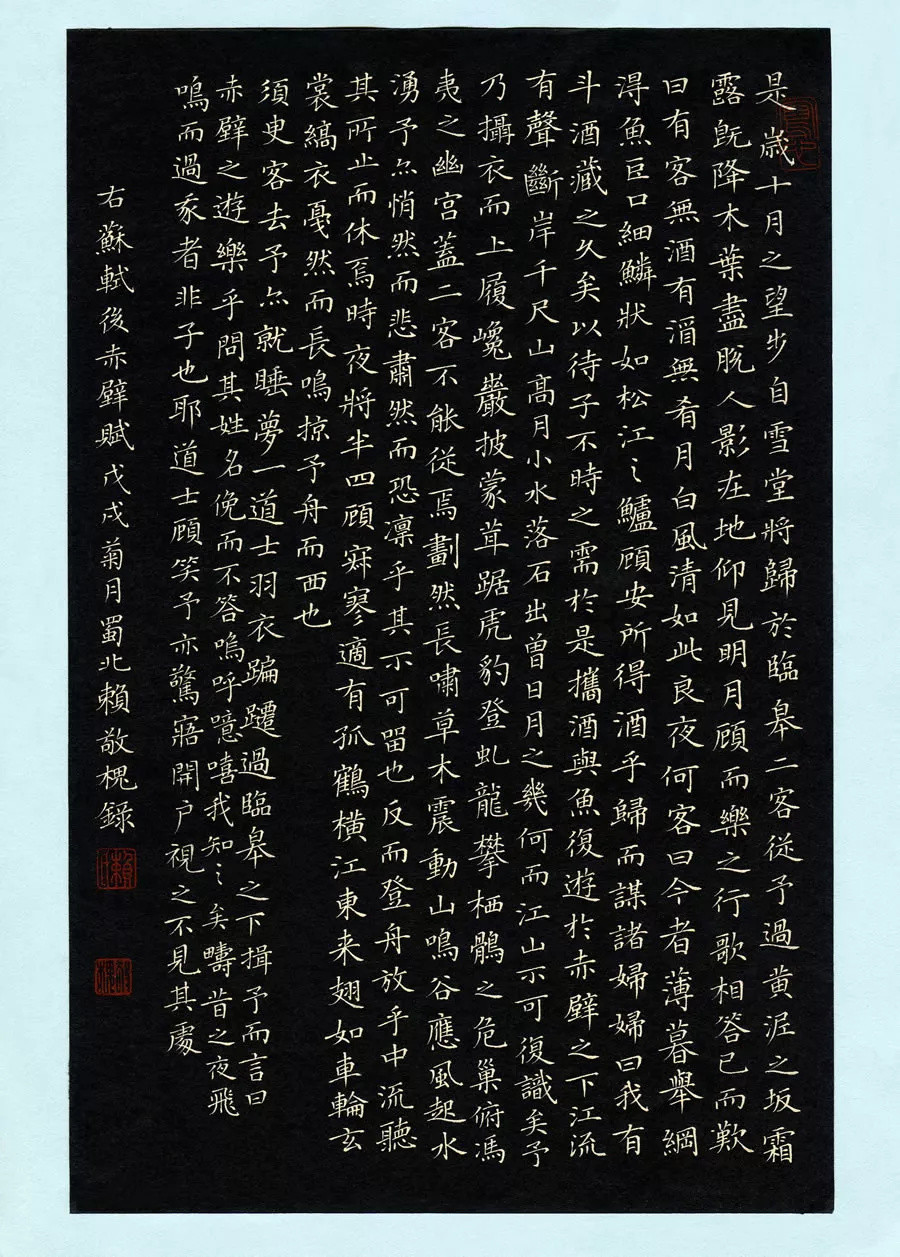 是歲十月之望步自雪堂將歸於臨皋二客從予過黃泥之坂霜
露既降木葉盡脫人影在地仰見明月顧而樂之行歌相答已而歎
曰有客無酒有酒無肴月白風清如此良夜何客曰今者薄暮舉網
得魚巨口細鱗狀如松江之鱸顧安所得酒乎歸而謀諸婦婦曰我有
斗酒藏之久矣以待子不時之需於是攜酒與魚復遊於赤壁之下江流
有聲斷岸千尺山高月小水落石出曾日月之幾何而江山不可復識矣予
乃攝衣而上履巉巖披蒙茸踞虎豹登虬龍攀栖鶻之危巢俯馮
夷之幽宮蓋二客不能從焉劃然長嘯草木震動山鳴谷應風起水
湧予亦悄然而悲肅然而恐凜乎其不可留也反而登舟放乎中流聽
其所止而休焉時夜將半四顧寂寥適有孤鶴橫江東来翅如車輪玄
裳縞衣戛然而長鳴掠予舟而西也
須臾客去予亦就睡夢一道士羽衣蹁躚過臨皋之下揖予而言曰
赤壁之遊樂乎問其姓名俛而不答嗚呼噫嘻我知之矣疇昔之夜飛
鳴而過我者非子也耶道士顧笑予亦驚寤開户視之不見其處
右蘇軾後赤壁賦戊戌菊月蜀北賴敬槐錄